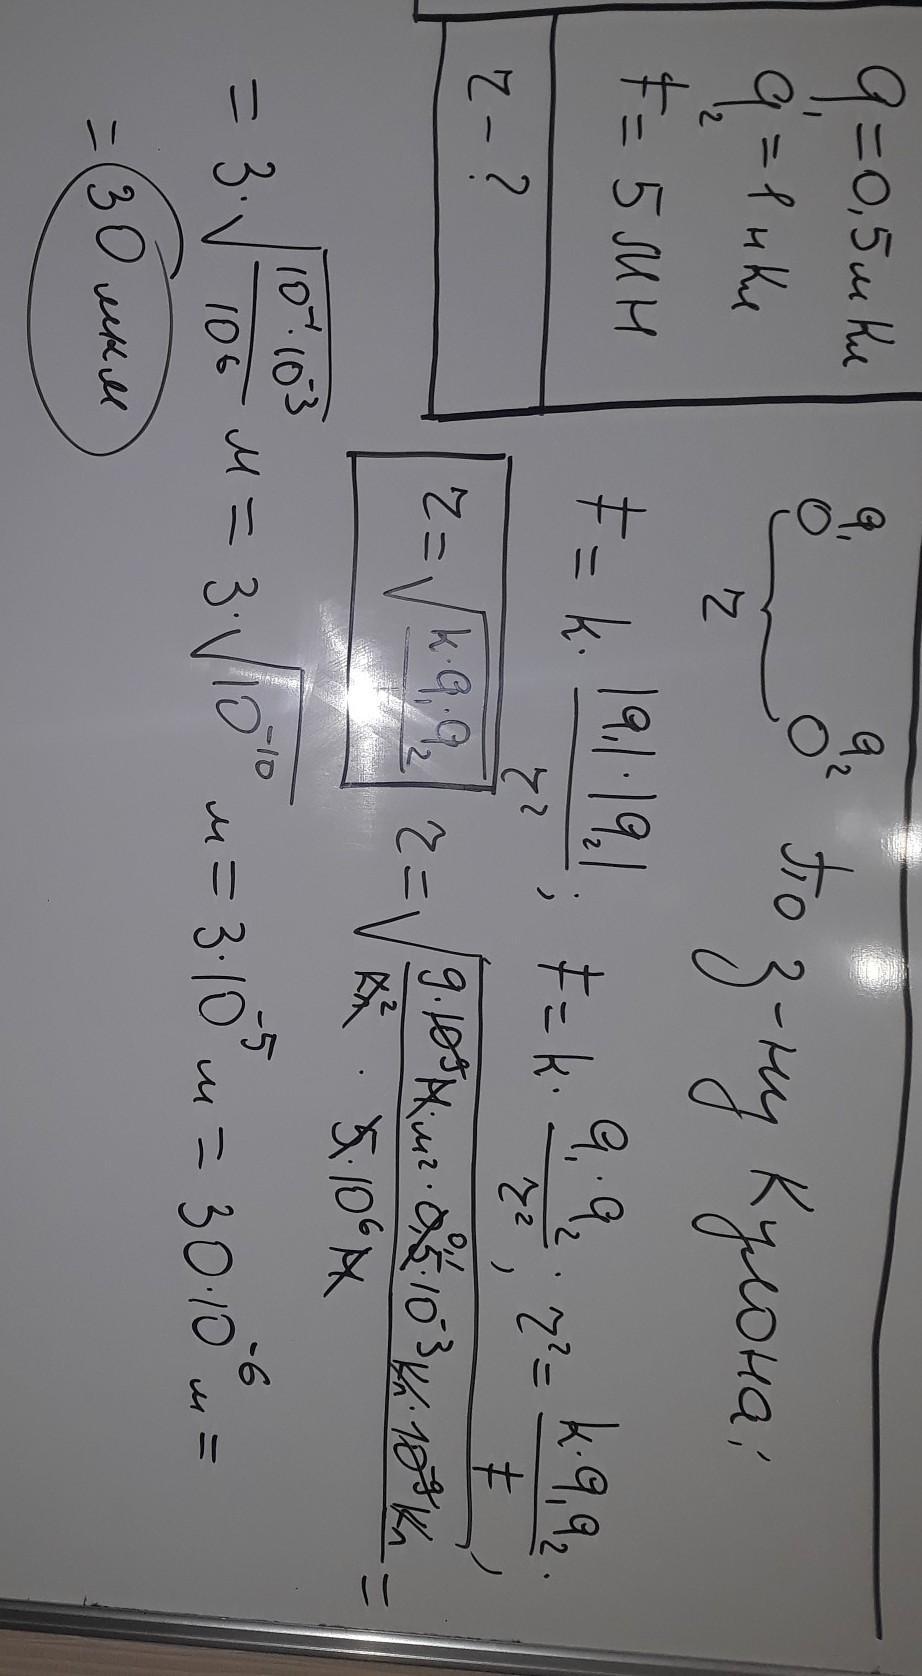 q₁ = 0,5 мКл
q₂ = 1 нКл
F = 5 МН
r - ?
q₁ q₂
r
По з-ну Кулона:
F = k · |q₁| · |q₂| / r² ; F = k · q₁ · q₂ / r² ; r² = k · q₁ q₂ / F .
r = √(k · q₁ · q₂ / F) r = √(9 · 10⁹ Н · м² · 0,5 0,1 · 10⁻³ Кл · 10⁻⁹ Кл / Кл² · 5 · 10⁶ Н) =
= 3 · √(10⁻¹ · 10⁻³ / 10⁶) м = 3 · √10⁻¹⁰ м = 3 · 10⁻⁵ м = 30 · 10⁻⁶ м =
= 30 мкм